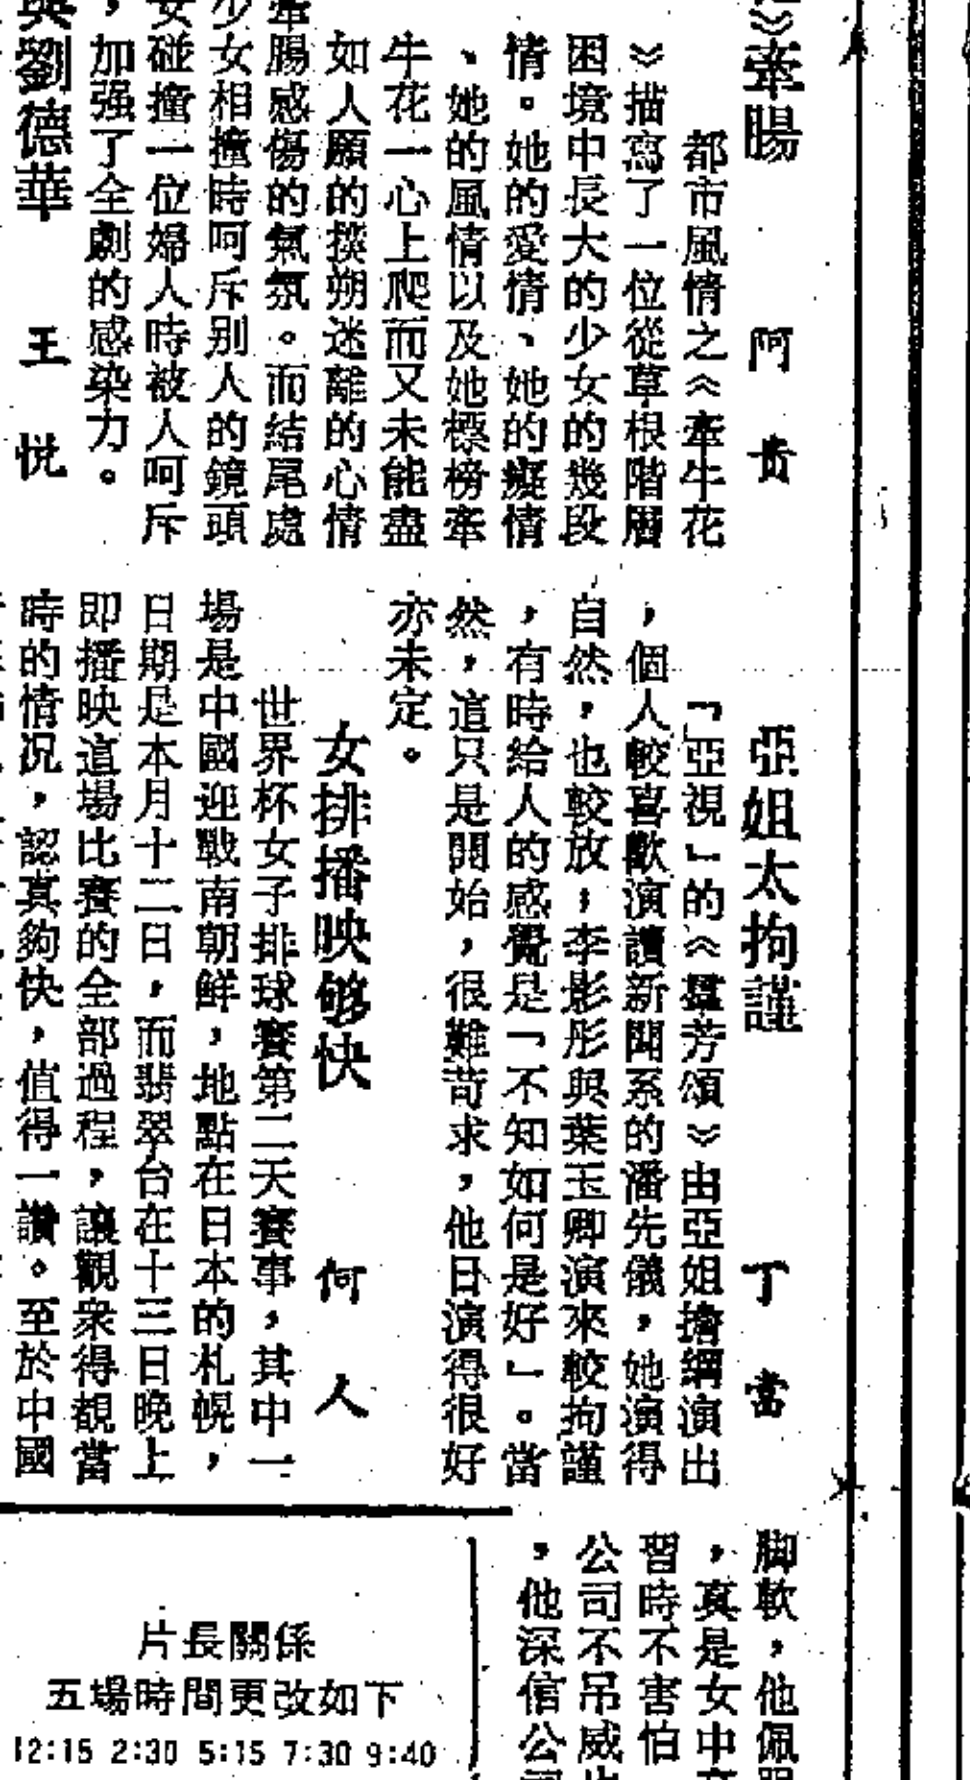 》牽腸
阿貴
都市風情之《牽牛花
》描寫了一位從草根階層
困境中長大的少女的幾段
情。她的愛情、她的癡情
、她的風情以及她標榜牽
牛花一心上爬而又未能盡
如人願的撲朔迷離的心情
腸感傷的氣氛。而結尾處
少女相撞時呵斥別人的鏡頭
女碰撞一位婦人時被人呵斥
，加强了全劇的感染力。
與劉德華
王悅
亞姐太拘謹
丁當
「亞視」的《羣芳頌》由亞姐擔綱演出
，個人較喜歡演讀新聞系的潘先儀，她演得
自然，也較放；李影彤與葉玉卿演來較拘謹
，有時給人的感覺是「不知如何是好」。當
然，這只是開始，很難苛求，他日演得很好
亦未定。
女排播映够快
何人
世界杯女子排球賽第二天賽事，其中一
場是中國迎戰南朝鮮，地點在日本的札幌，
日期是本月十二日，而翡翠台在十三日晚上
即播映這場比賽的全部過程，讓觀衆得覩當
時的情況，認真夠快，值得一讚。至於中國
脚軟，他佩
，真是女中
習時不害怕
公司不吊威
，他深信公
片長關係
五場時間更改如下
12:15 2:30 5:15 7:30 9:40